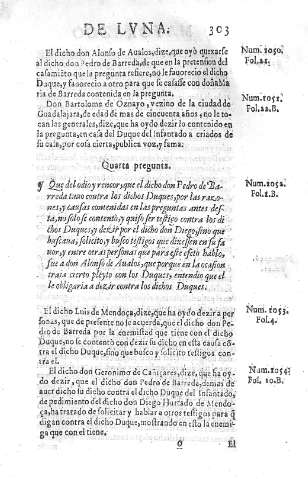 DE LVNA. 303
El dicho don Alonso de Aualos, dize, que oyò quexarse
al dicho don Pedro de Barreda, de que en la pretension del
casamiẽto que la pregunta refiere, no le fauorecio el dicho
Duque, y fauorecio a otro para que se casasse con doña Ma
ria de Barreda contenida en la pregunta.
Num. 1050.
Fol. 22.
Don Bartolome de Oznayo, vezino de la ciudad de
Guadalajara, de edad de mas de cincuenta años, no le to-
can las generales, dize, que ha oydo dezir lo contenido en
la pregunta, en casa del Duque del Infantado a criados de
su casa, por cosa cierta, publica voz, y fama.
Num. 1051.
Fol. 22. B.
Quarta pregunta.
Que del odio y rencor, que el dicho don Pedro de Ba-
rreda tuuo contra los dichos Duques, por las razo-
nes, y causas contenidas en las preguntas antes des-
ta, no solo se contentò, y quiso ser testigo contra los di-
chos Duques, y dezir por el dicho don Diego, sino que
buscaua, solicitò, y buscò testigos que dixessen en su fa
uor, y entre otras personas que para este efeto hablò,
fue a don Alonso de Aualos, que porque en la ocasion
traìa cierto pleyto con los Duques, entendio que el
le obligaria a dezir contra los dichos Duques.
Num. 1052.
Fol. 1. B.
El dicho Luis de Mendoça, dize, que ha oydo dezir a per
sonas, que de presente no se acuerda, que el dicho don Pe-
dro de Barreda por la enemistad que tiene con el dicho
Duque, no se contentò con dezir su dicho en esta causa cõ-
tra el dicho Duque, sino que buscò y solicitò testigos con-
tra el.
Num. 1053.
Fol. 4.
El dicho don Geronimo de Cañiçares, dize, que ha oy
do dezir, que el dicho don Pedro de Barreda, demas de
auer dicho su dicho contra el dicho Duque del Infantado,
de pedimiento del dicho don Diego Hurtado de Mendo-
ça, ha tratado de solicitar y hablar a otros testigos para q̃
digan contra el dicho Duque, mostrando en esto la enemi-
ga que con el tiene.
Num. 1054.
Fol. 10. B.
O El